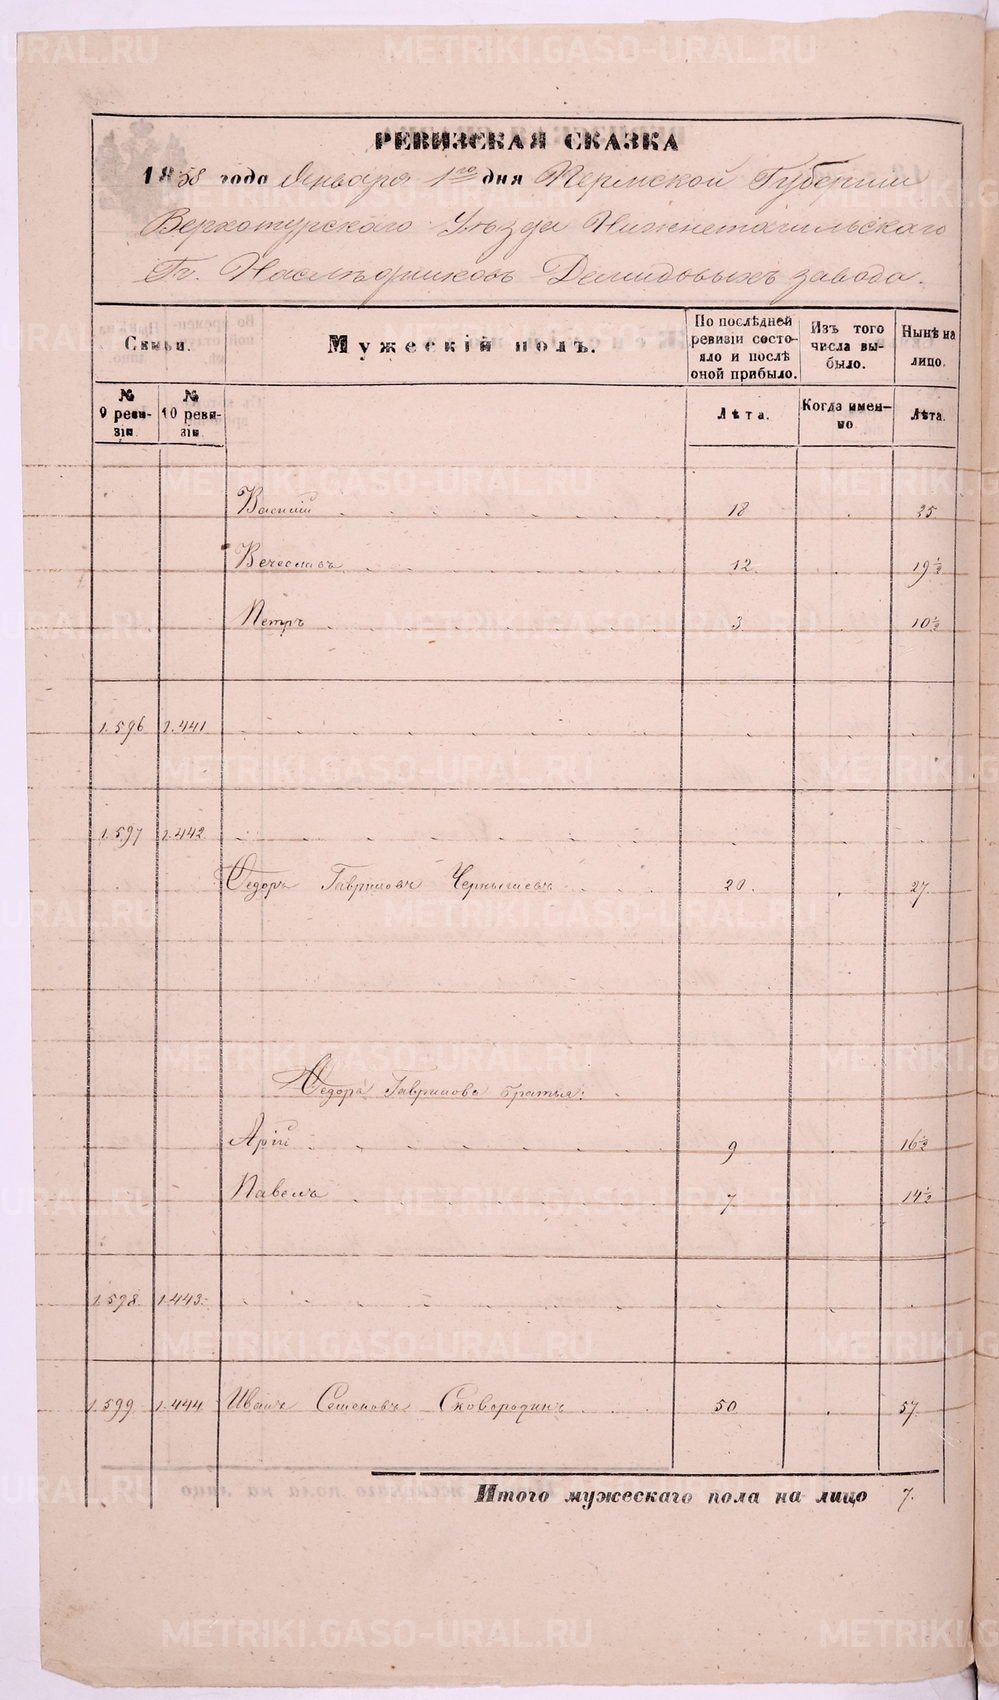 РЕВИЗСКАЯ СКАЗКА
1858 года Января 1го дня Пермской Губернии
Верхотурскаго Уѣзда Нижнетагильскаго
Гг. Наслѣдниковъ Демидовыхъ завода.
Семьи. Мужескій полъ. По послѣдней ревизіи состояло и послѣ оной прибыло. Изъ того числа выбыло. Нынѣ на лицо.
№ 9 ревизіи. № 10 ревизіи. Лѣта. Когда именно Лѣта.
Василій 18 25
Вечеславъ 12 19½
Петръ 3 10½
1.596 1.441
1.597 1.442
Ѳедоръ Гавриловъ Чернышевъ 20. 27
Ѳедора Гаврилова братья:
Арій 9 16½
Павелъ 7 14½
1.598 1.443
1.599 1.444 Иванъ Семеновъ Сковородинъ 50 57
Итого мужескаго пола на лицо 7.
METRIKI.GASO-URAL.RU